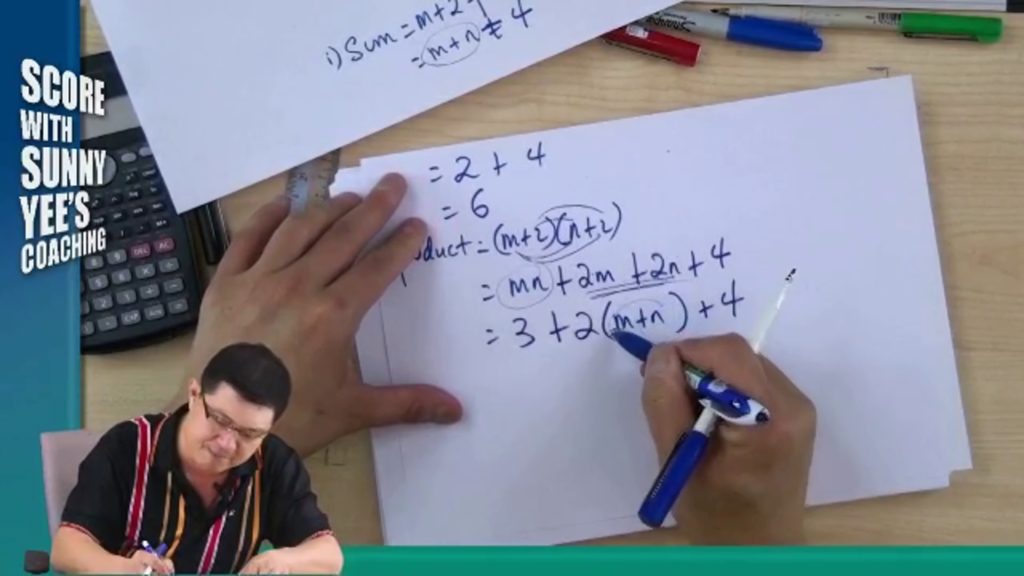 SCORE
WITH
SUNNY
YEE'S
COACHING
i) Sum = m+2
= m+n+4
= 2 + 4
= 6
= (m+2)(n+2)
= mn + 2m + 2n + 4
= 3 + 2(m+n) + 4